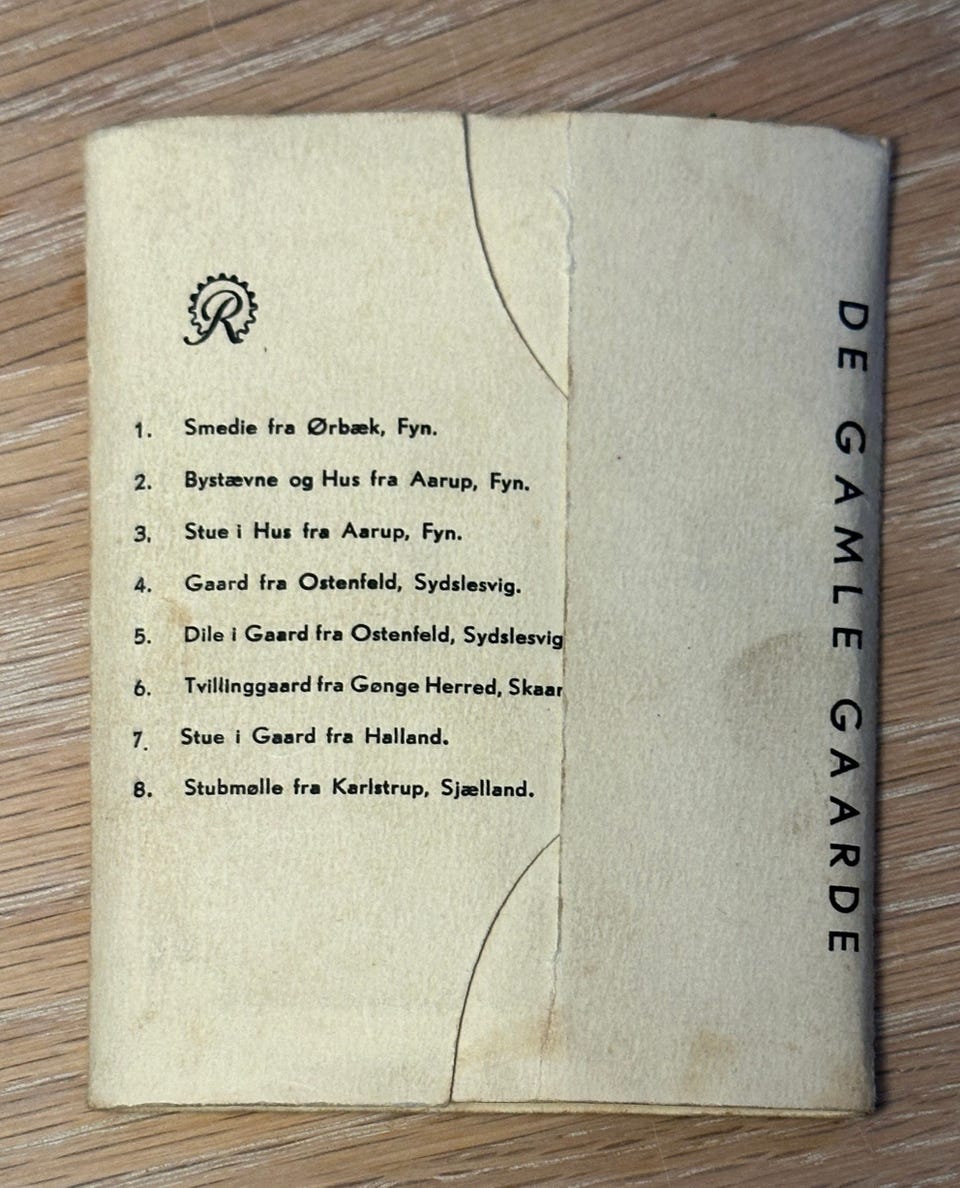 R
1. Smedie fra Ørbæk, Fyn.
2. Bystævne og Hus fra Aarup, Fyn.
3. Stue i Hus fra Aarup, Fyn.
4. Gaard fra Ostenfeld, Sydslesvig.
5. Dile i Gaard fra Ostenfeld, Sydslesvig
6. Tvillinggaard fra Gønge Herred, Skaar
7. Stue i Gaard fra Halland.
8. Stubmølle fra Karlstrup, Sjælland.
DE GAMLE GAARDE